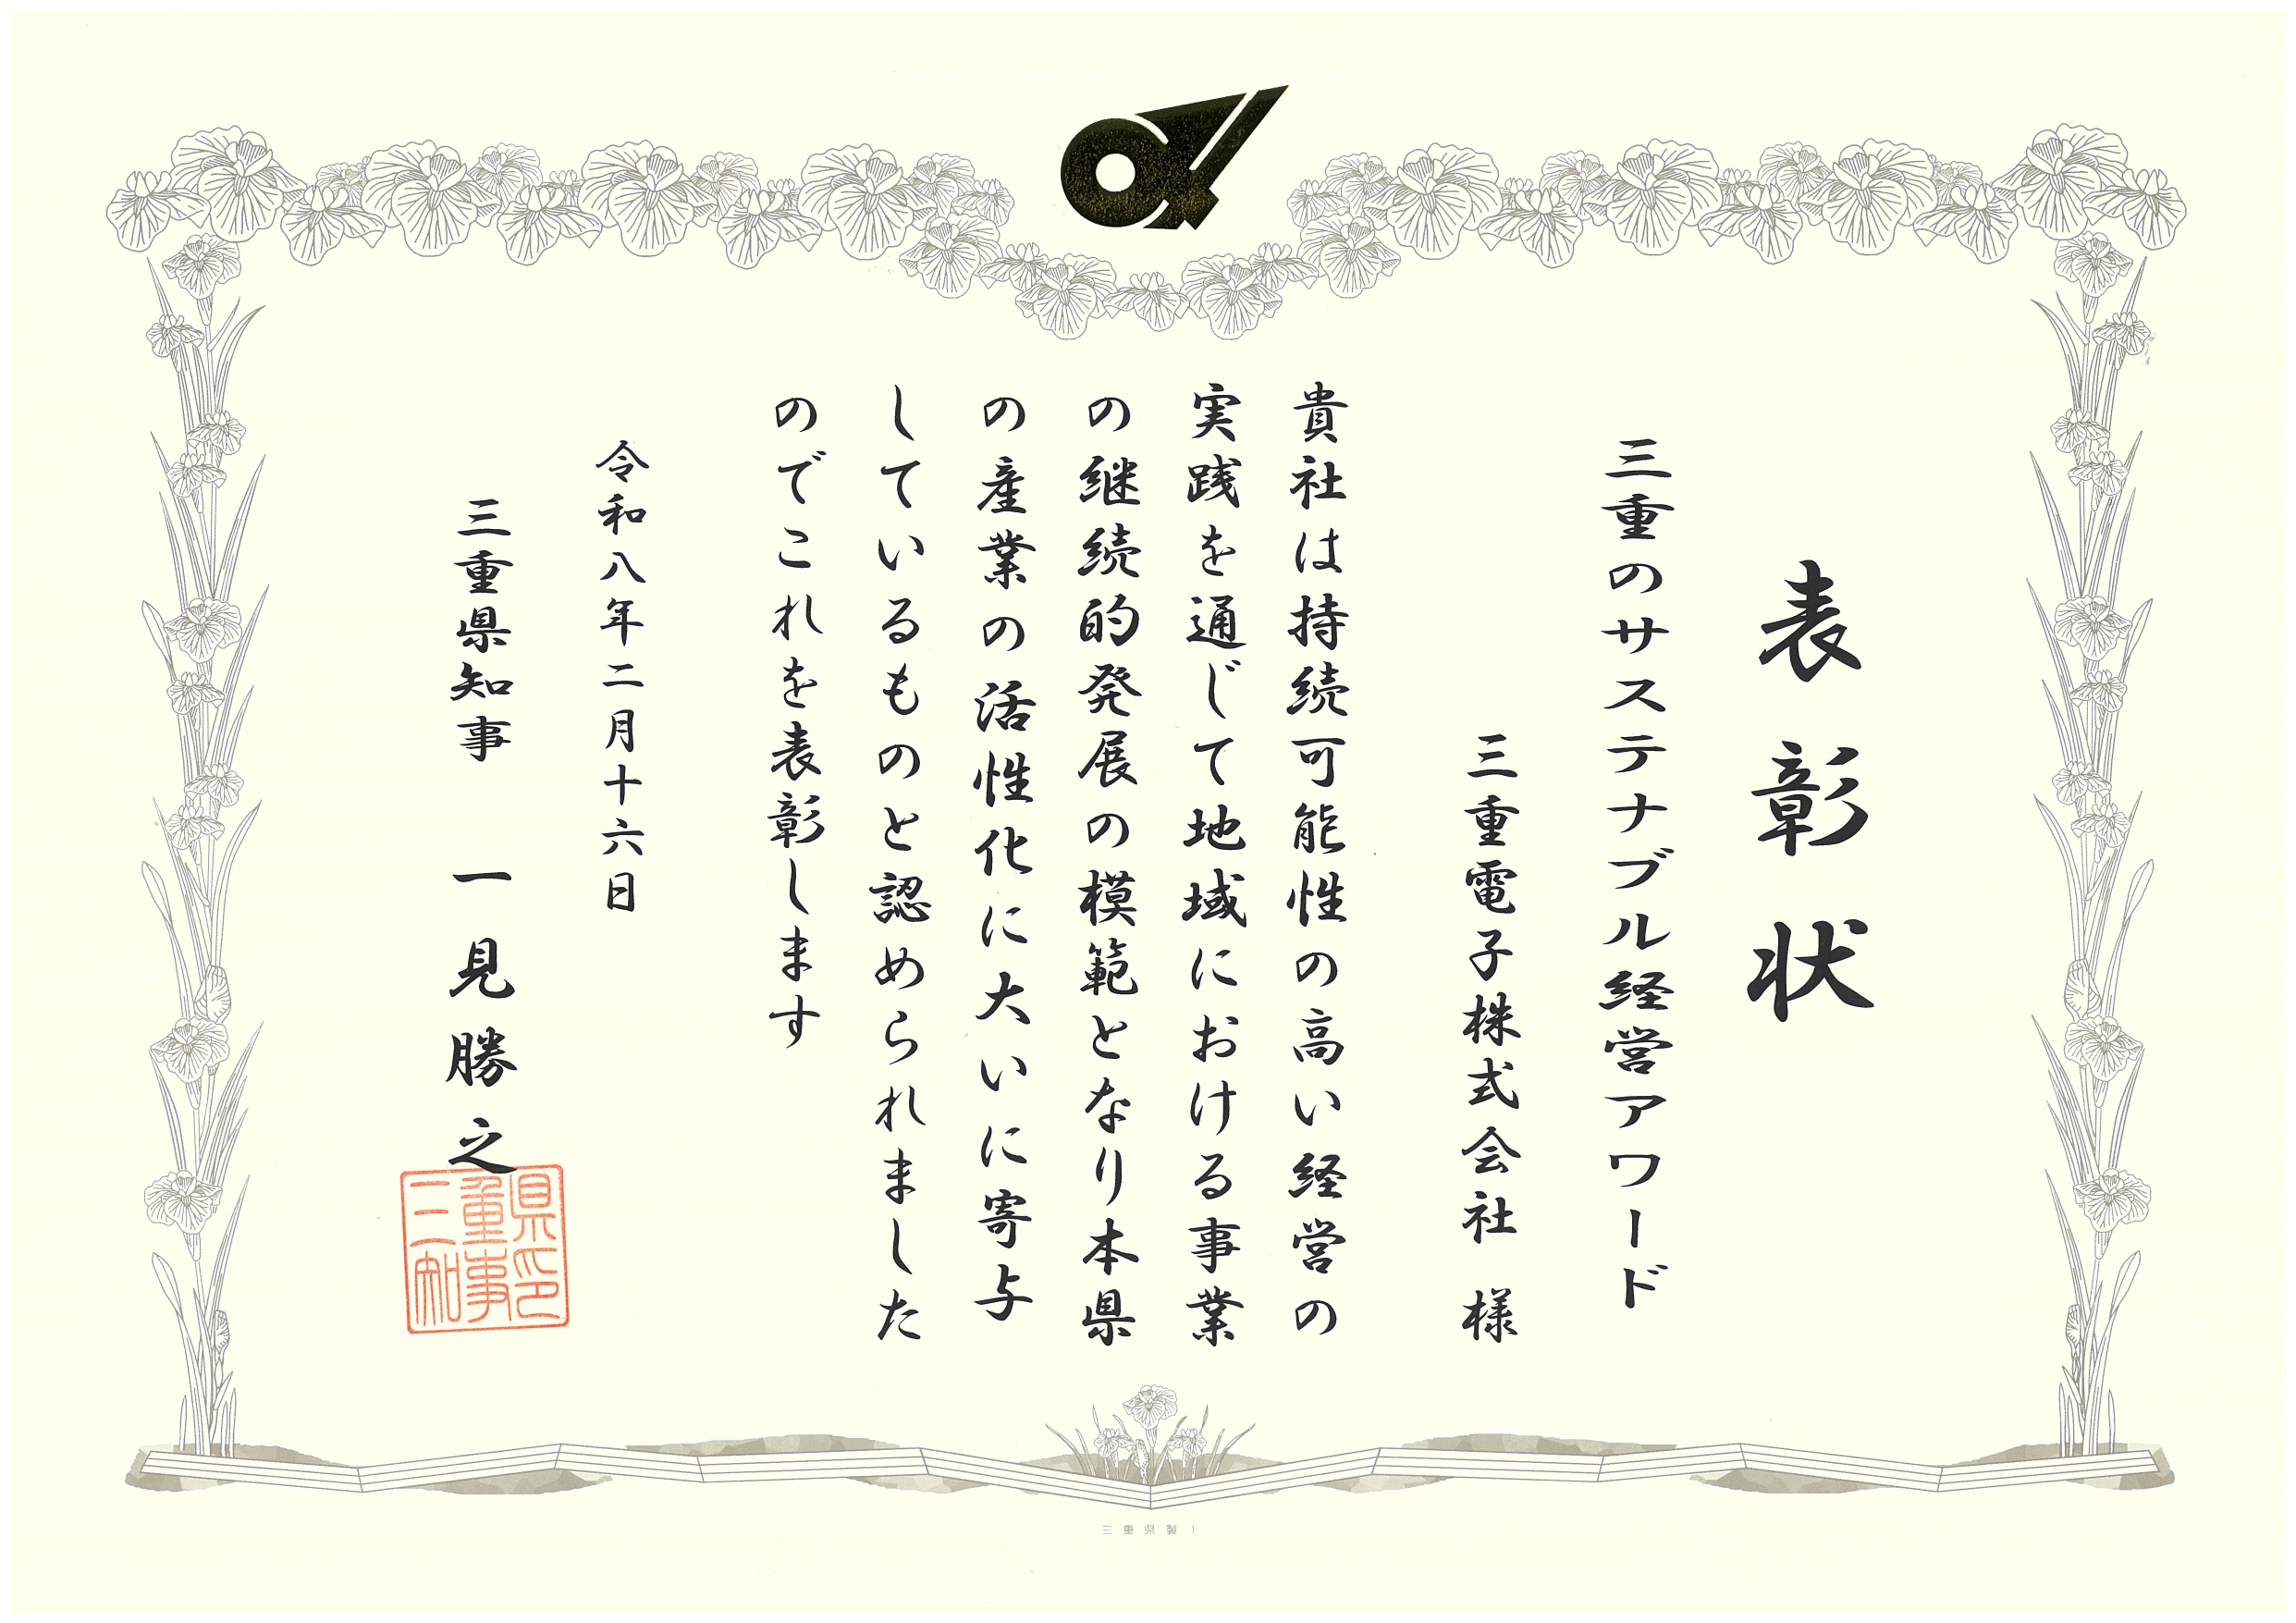 表彰状
三重のサステナブル経営アワード
三重電子株式会社 様
貴社は持続可能性の高い経営の
実践を通じて地域における事業
の継続的発展の模範となり本県
の産業の活性化に大いに寄与
しているものと認められました
のでこれを表彰します
令和八年二月十六日
三重県知事 一見勝之
県印
重事
三知
三重県製1